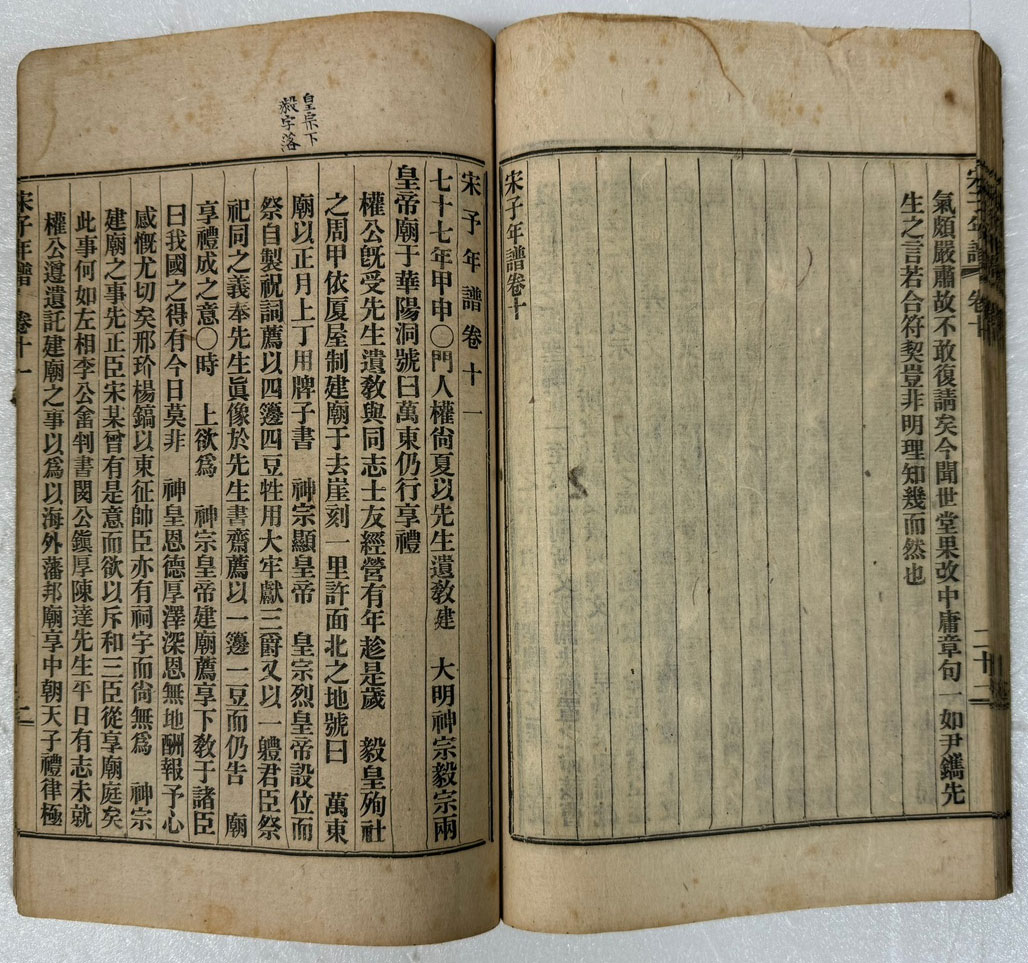 宋子年譜 卷十 二十二
氣頗嚴肅故不敢復請矣今聞世堂果改中庸章句一如尹鑴先
生之言若合符契豈非明理知幾而然也
宋子年譜卷十
皇宗下
毅字落
宋子年譜卷十一
七十七年甲申〇門人權尙夏以先生遺敎建 大明神宗毅宗兩
皇帝廟于華陽洞號曰萬東仍行享禮
權公旣受先生遺敎與同志士友經營有年趁是歲 毅皇殉社
之周甲依厦屋制建廟于去崖刻一里許面北之地號曰 萬東
廟以正月上丁用牌子書 神宗顯皇帝 皇宗烈皇帝設位而
祭自製祝詞薦以四籩四豆牲用大牢獻三爵又以一軆君臣祭
祀同之義奉先生眞像於先生書齋薦以一籩一豆而仍告 廟
享禮成之意〇時 上欲爲 神宗皇帝建廟薦享下敎于諸臣
曰我國之得有今日莫非 神皇恩德厚澤深恩無地酬報予心
感慨尤切矣邢玠楊鎬以東征帥臣亦有祠宇而尙無爲 神宗
建廟之事先正臣宋某曾有是意而欲以斥和三臣從享廟庭矣
此事何如左相李公畬判書閔公鎭厚陳達先生平日有志未就
權公遵遺託建廟之事以爲以海外藩邦廟享中朝天子禮律極
宋子年譜 卷十一